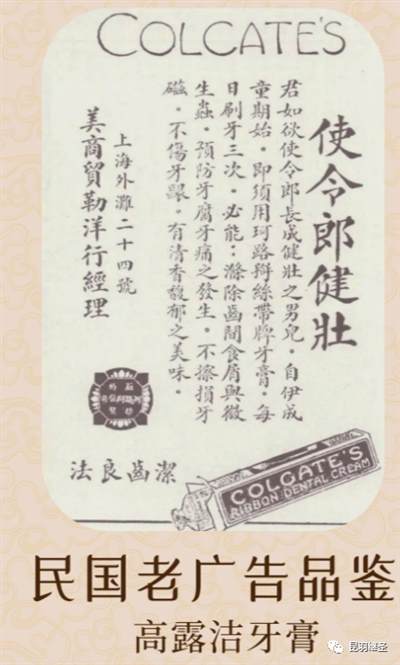 COLGATE'S
使令郎健壯
君如欲使令郎長成健壯之男兒。自伊成
童期始。即須用珂路搿絲帶牌牙膏。每
日刷牙三次。必能:滌除齒間食屑與微
生蟲。預防牙腐牙痛之發生。不擦損牙
磁。不傷牙齦。有清香馥郁之美味。
上海外灘二十四號
美商貿勒洋行經理
潔齒良法
COLGATE'S
RIBBON DENTAL CREAM
民国老广告品鉴
高露洁牙膏
昆羽继圣